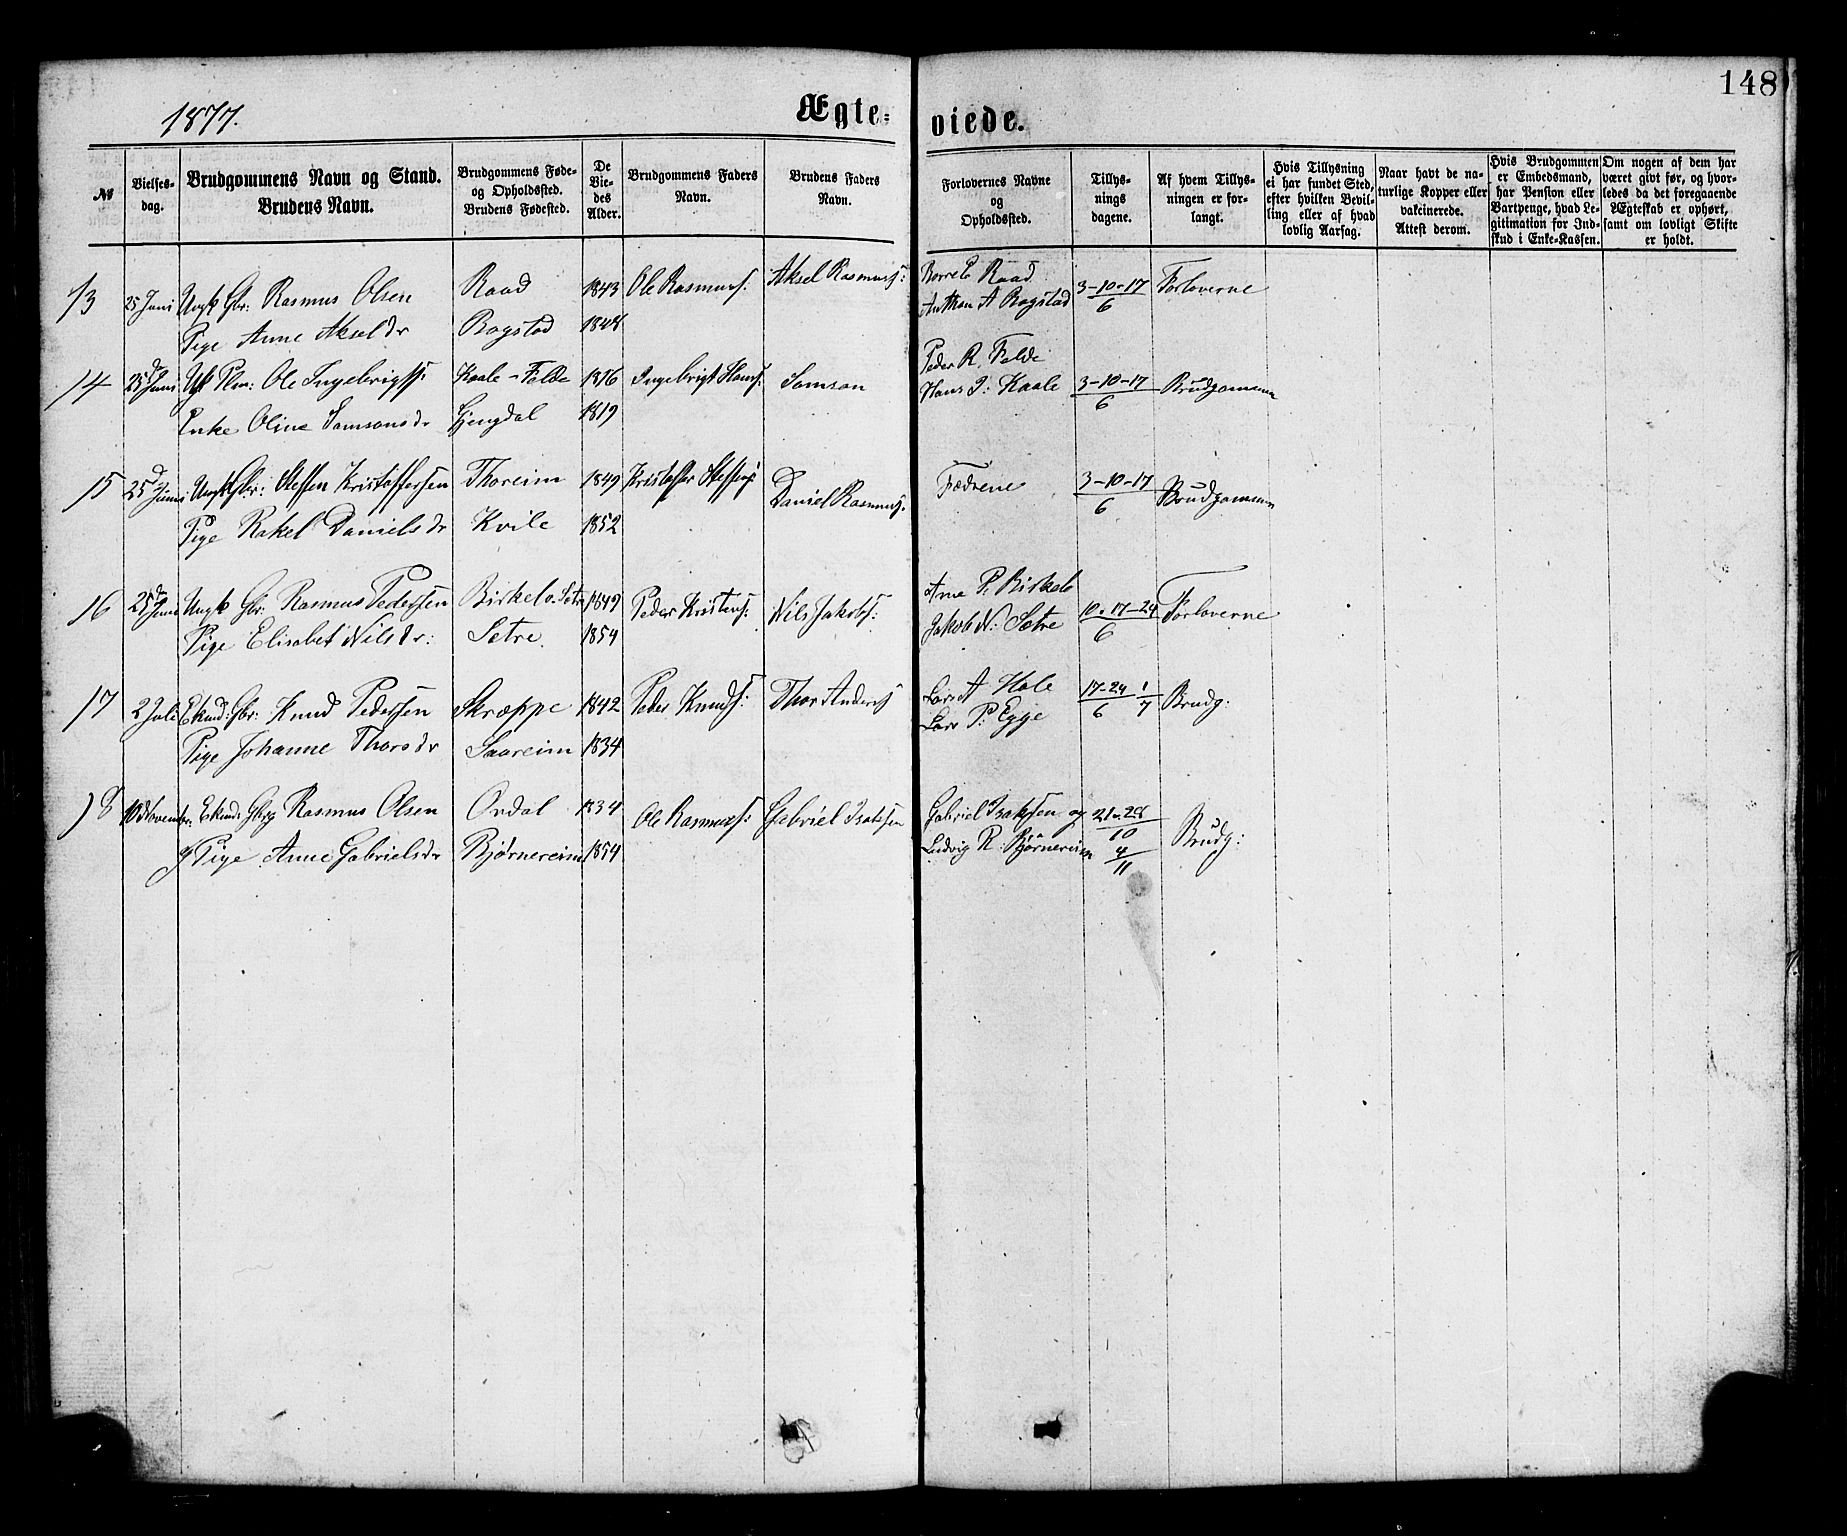 148
1877.
Ægte-viede.
№
Vielses-dag.
Brudgommens Navn og Stand.
Brudens Navn.
Brudgommens Føde- og Opholdssted.
Brudens Fødested.
De Vie-des Alder.
Brudgommens Faders Navn.
Brudens Faders Navn.
Forlovernes Navne og Opholdssted.
Tillys-nings dagene.
Af hvem Tillys-ningen er for-langt.
Hvis Tillysning ei har fundet Sted, efter hvilken Bevil-ling eller af hvad lovlig Aarsag.
Naar havt de na-turlige Kopper eller vakcinerede. Attest derom.
Hvis Brudgommen er Embedsmand, har Pension eller Vartpenge, hvad Le-gitimation for Ind-skud i Enke-Kassen.
Om nogen af dem har været givt før, og hvor-ledes da det foregaaende Ægteskab er ophørt, samt om lovligt Skifte er holdt.
13 25 Juni Ungk Gbr: Rasmus Olsen Raad 1843 Ole Rasmuss: Aksel Rasmuss: Raad 3-10-17/6 Forloverne
Pige Anne Akseldr Bogstad 1848 Anthon A Bogstad
14 25 d Juni Plm: Ole Ingebrigts: Kaale-Felde 1816 Ingebrigt Hans: Samson Peder R. Felde 3-10-17/6 Brudgommen
Enke Oline Samsonsdr Gjengdal 1819 Hans I: Kaale
15 25 d Juni Ungk Gbr: Steffen Kristoffersen Thoreim 1849 Kristoffer Steffens: Daniel Rasmuss. Fædrene 3-10-17/6 Brudgommen
Pige Rakel Danielsdr Kvile 1852
16 25 d Juni Ungk Gbr: Rasmus Pedersen Birkelo. Sætre 1849 Peder Kristens: Nils Jakobs: Arne P. Birkelo 10-17-24/6 Forloverne
Pige Elisabet Nilsdr: Sætre. 1854 Jakob N: Sætre
17 2 Juli Ekmd: Gbr: Knud Pedersen Skræppe 1842 Peder Knuds: Thor Anders Lars A Hole 17-24/6 1/7 Brudg:
Pige Johanne Thorsdr Saareim 1834 Lars P: Egge
18 10 November: Ekmd: Rasmus Olsen Ordal 1834 Ole Rasmuss: Gabriel Isaksen Gabriel Isaksen og 21-28/10 Brudg:
g Pige Anne Gabrielsdr Bjørnereim 1854 Ludvig R. Bjørnereim 4/11